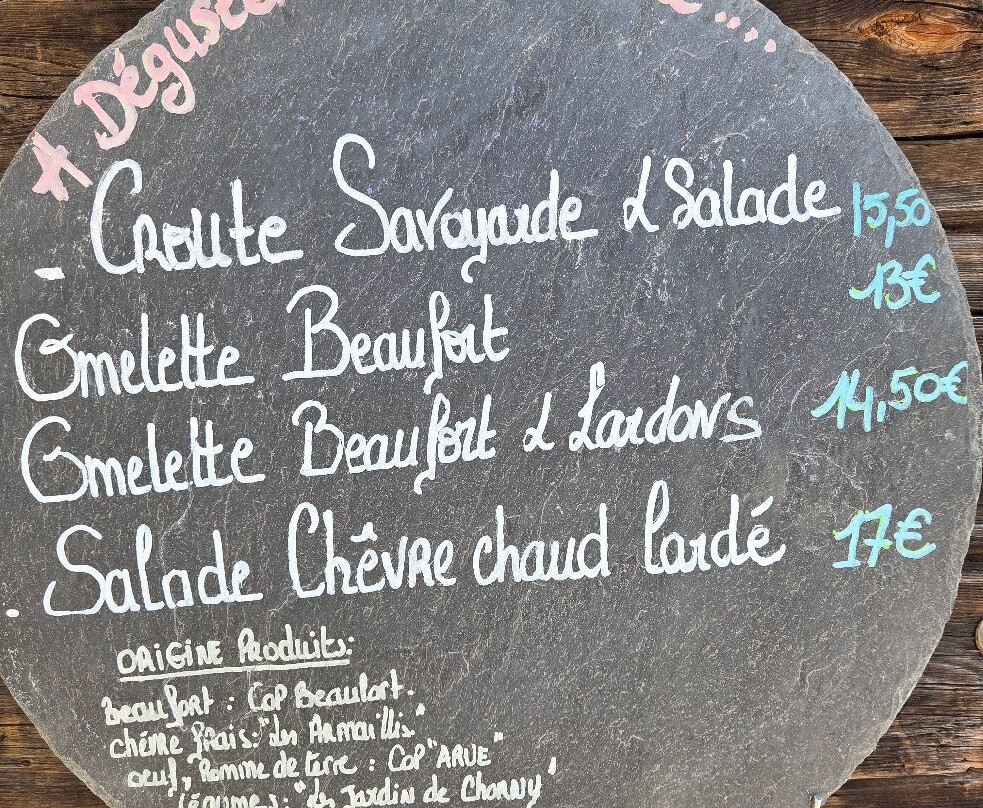 A Déguster
- Croute Savoyarde & Salade 15,50
Omelette Beaufort 13€
Omelette Beaufort & Lardons 14,50€
. Salade Chêvre chaud lardé 17€
ORIGINE Produits:
Beaufort : Cop Beaufort.
chèvre frais: "les Armaillis"
oeuf, Pomme de terre : Cop "ARUE"
Légumes: "les Jardin de Choray"